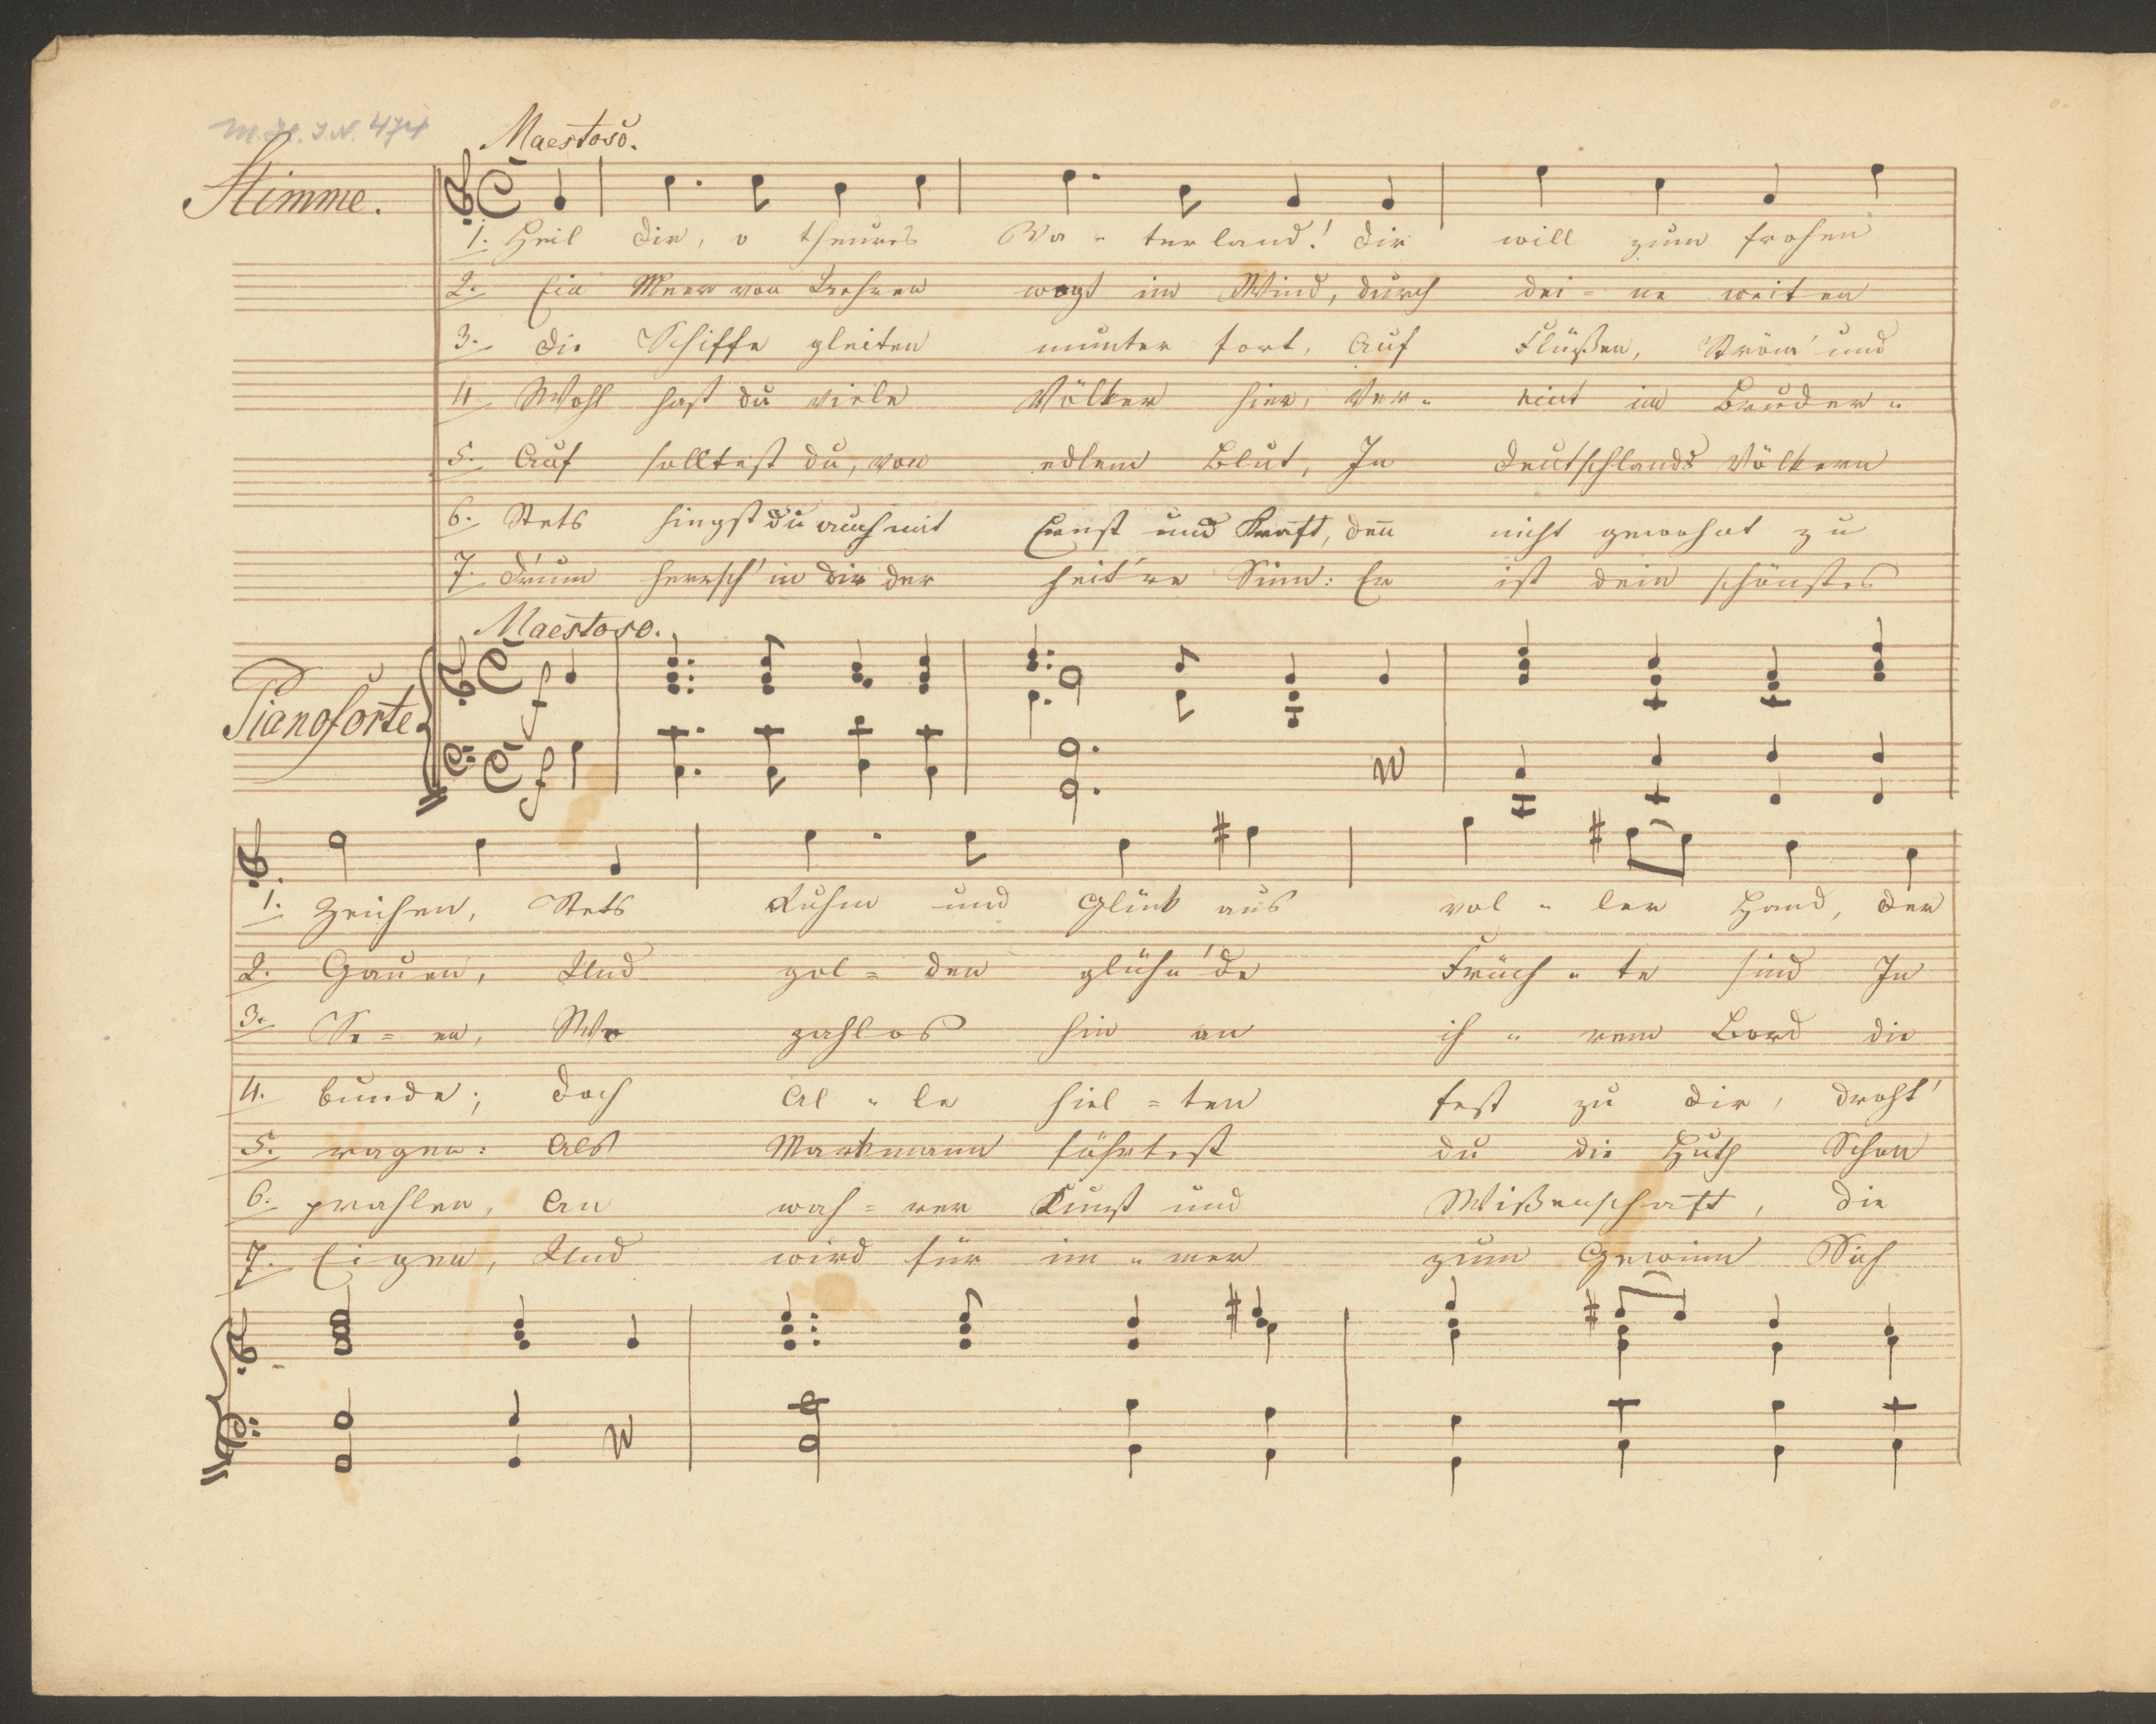 M. H. I.N. 474
Maestoso.
Stimme.
1. Heil dir, o theures Va - terland! dir will zum frohen
2. Ein Meer von Aehren wogt im Wind, durch dei = ne weiten
3. die Schiffe gleiten munter fort, Auf Flüßen, Ström' und
4 Wohl hast du viele Völker hier, Ver - eint im Bruder -
5. Auf solltest du, von edlem Blut, In Deutschlands Völkern
6. Stets hingst du auch mit Ernst und Kraft, den̄ nicht gewohnt zu
7. D'rum herrsch' in dir der heit're Sinn: Er ist dein schönstes
Maestoso.
Pianoforte
f
f
1. Zeichen, Stets Ruhm und Glück aus vol - ler Hand, der
2. Gauen, Und gol = den glüh'nde Früch - te sind In
3. Se = en, Wo zahlos hin an ih - rem Bord die
4. bunde; doch Al - le hiel = ten fest zu dir, droht'
5. ragen: Als Markmann führtest du die Huth Schon
6. prahlen, An wah = rer Kunst und Wißenschaft, die
7. Eigen, Und wird für im - mer zum Gewinn Sich